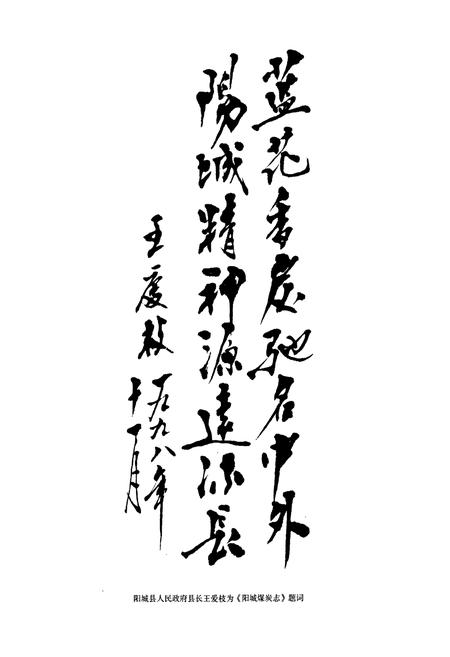 蓝花香炭驰名中外
陽城精神源遠流長
王爱枝
一九九八年
十一月
阳城县人民政府县长王爱枝为《阳城煤炭志》题词